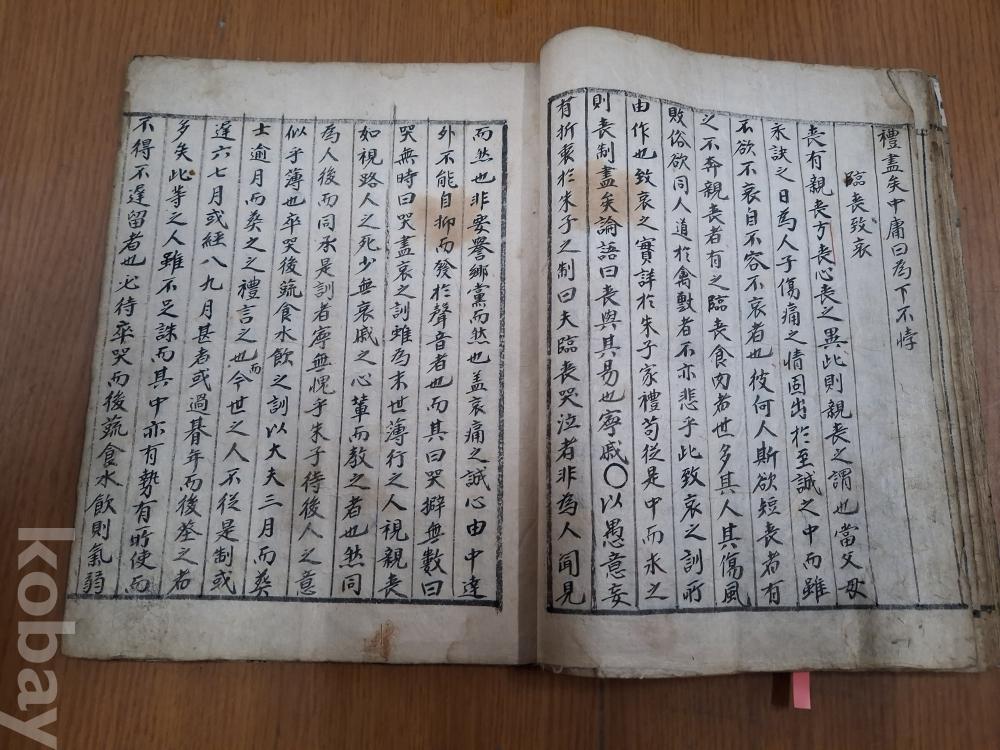 禮盡矣中庸曰為下不悖
臨喪致哀
喪有親喪方喪心喪之異此則親喪之謂也當父母
永訣之日為人子傷痛之情固出於至誠之中而雖
不欲不哀自不容不哀者也彼何人斯欲短喪者有
之不奔親喪者有之臨喪食肉者世多其人其傷風
敗俗欲同人道於禽獸者不亦悲乎此致哀之訓所
由作也致哀之實詳於朱子家禮苟從是中而求之
則喪制盡矣論語曰喪與其易也寧戚〇以愚意妄
有折衷於朱子之制曰夫臨喪哭泣者非為人聞見
而然也非要譽鄉黨而然也盖哀痛之誠心由中達
外不能自抑而發於聲音者也而其曰哭擗無數曰
哭無時曰哭盡哀之訓雖為末世薄行之人視親喪
如視路人之死少無哀戚之心輩而教之者也然同
為人後而同承是訓者寧無愧乎朱子待後人之意
似乎薄也卒哭後蔬食水飲之訓以大夫三月而葬
士逾月而葬之之禮言之也而今世之人不從是制或
遲六七月或經八九月甚者或過朞年而後葬之者
多矣此等之人雖不足誅而其中亦有勢有所使而
不得不遲留者也必待卒哭而後蔬食水飲則氣弱
kobay